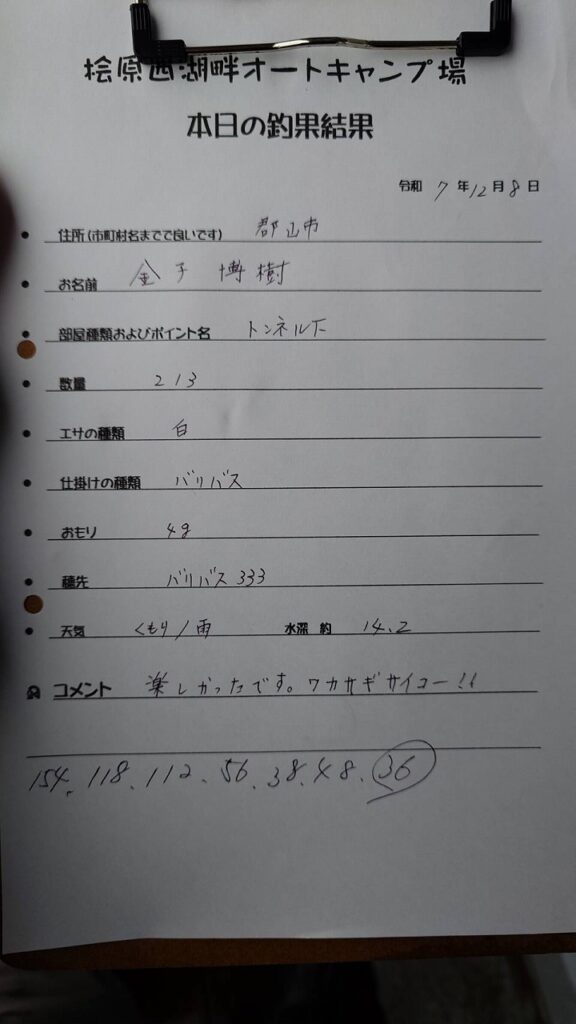 桧原西湖畔オートキャンプ場
本日の釣果結果
令和 7 年 12 月 8 日
住所(市町村名までで良いです) 郡山市
お名前 金子 博樹
部屋種類およびポイント名 トンネル下
数量 213
エサの種類 白
仕掛けの種類 バリバス
おもり 4g
穂先 バリバス 333
天気 くもり/雨 水深 約 14.2
コメント 楽しかったです。ワカサギサイコー!!
154. 118. 112. 56. 38. 48. 36